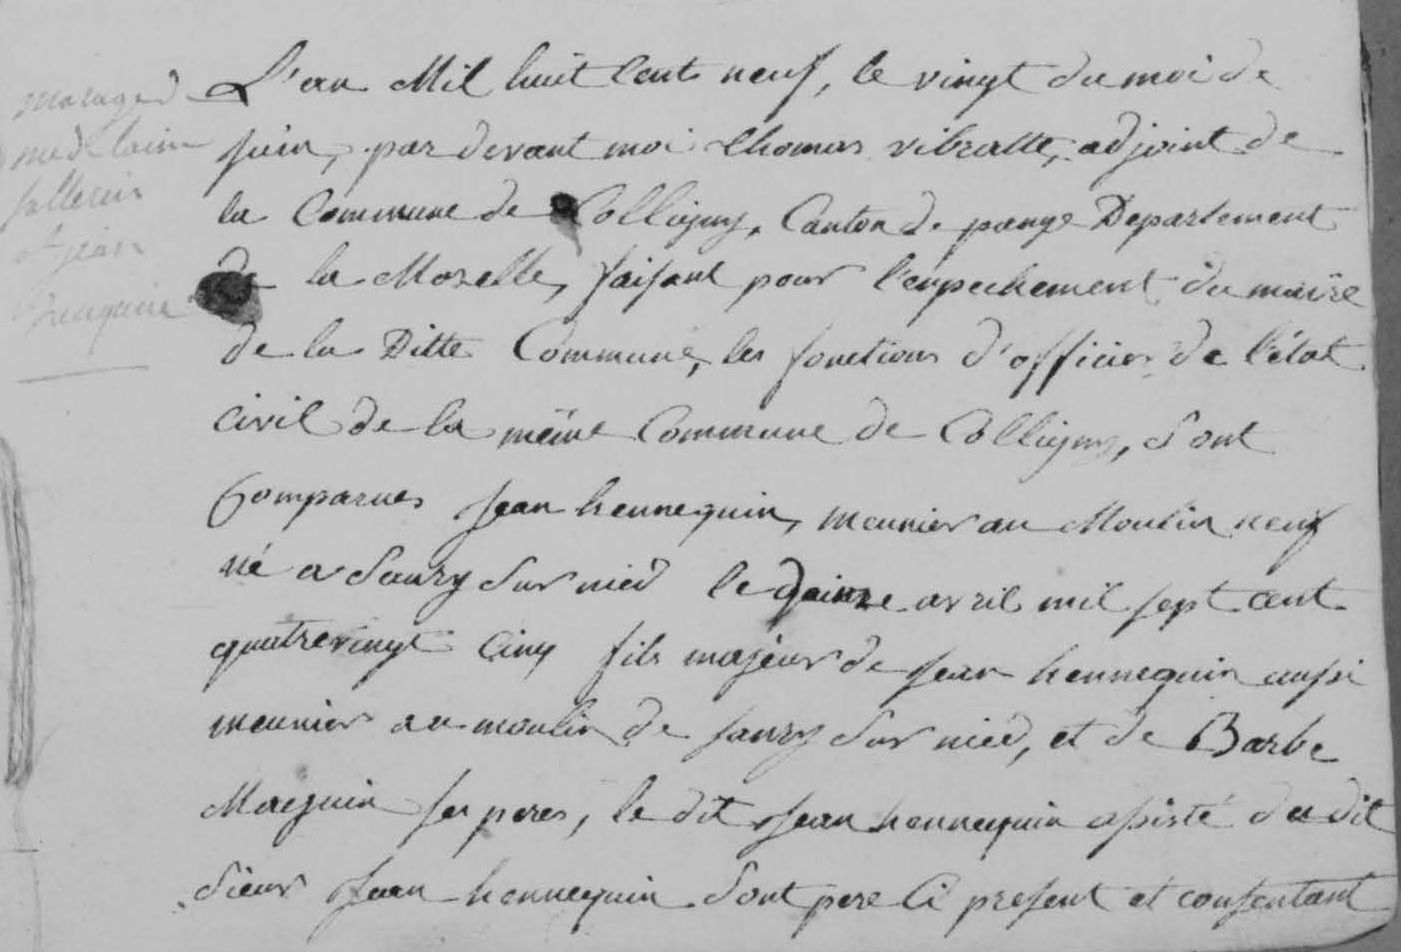 mariage d
md laine
fallerin
et jean
henequin
L'an Mil huit Cent neuf, le vingt du moi de
juin, par devant moi thomas vibratte, adjoint de
la Commune de Colligny, Canton de pange Departement
de la Moselle, faisant pour l'enpechement du maire
de la Ditte Commune, les fonctions d'officier de l'état
Civil de la même Commune de Colligny, Sont
Comparues jean hennequin, meunier au Moulin neuf
né a Sanry Sur nied le quinze avril mil sept cent
quatrevingt Cinq fils majeur de jean hennequin aussi
meunier au moulin de sanry Sur nied, et de Barbe
Maguin ses peres, le dit jean hennequin assisté du dit
Sieur jean hennequin Sont pere Ci present et consentant